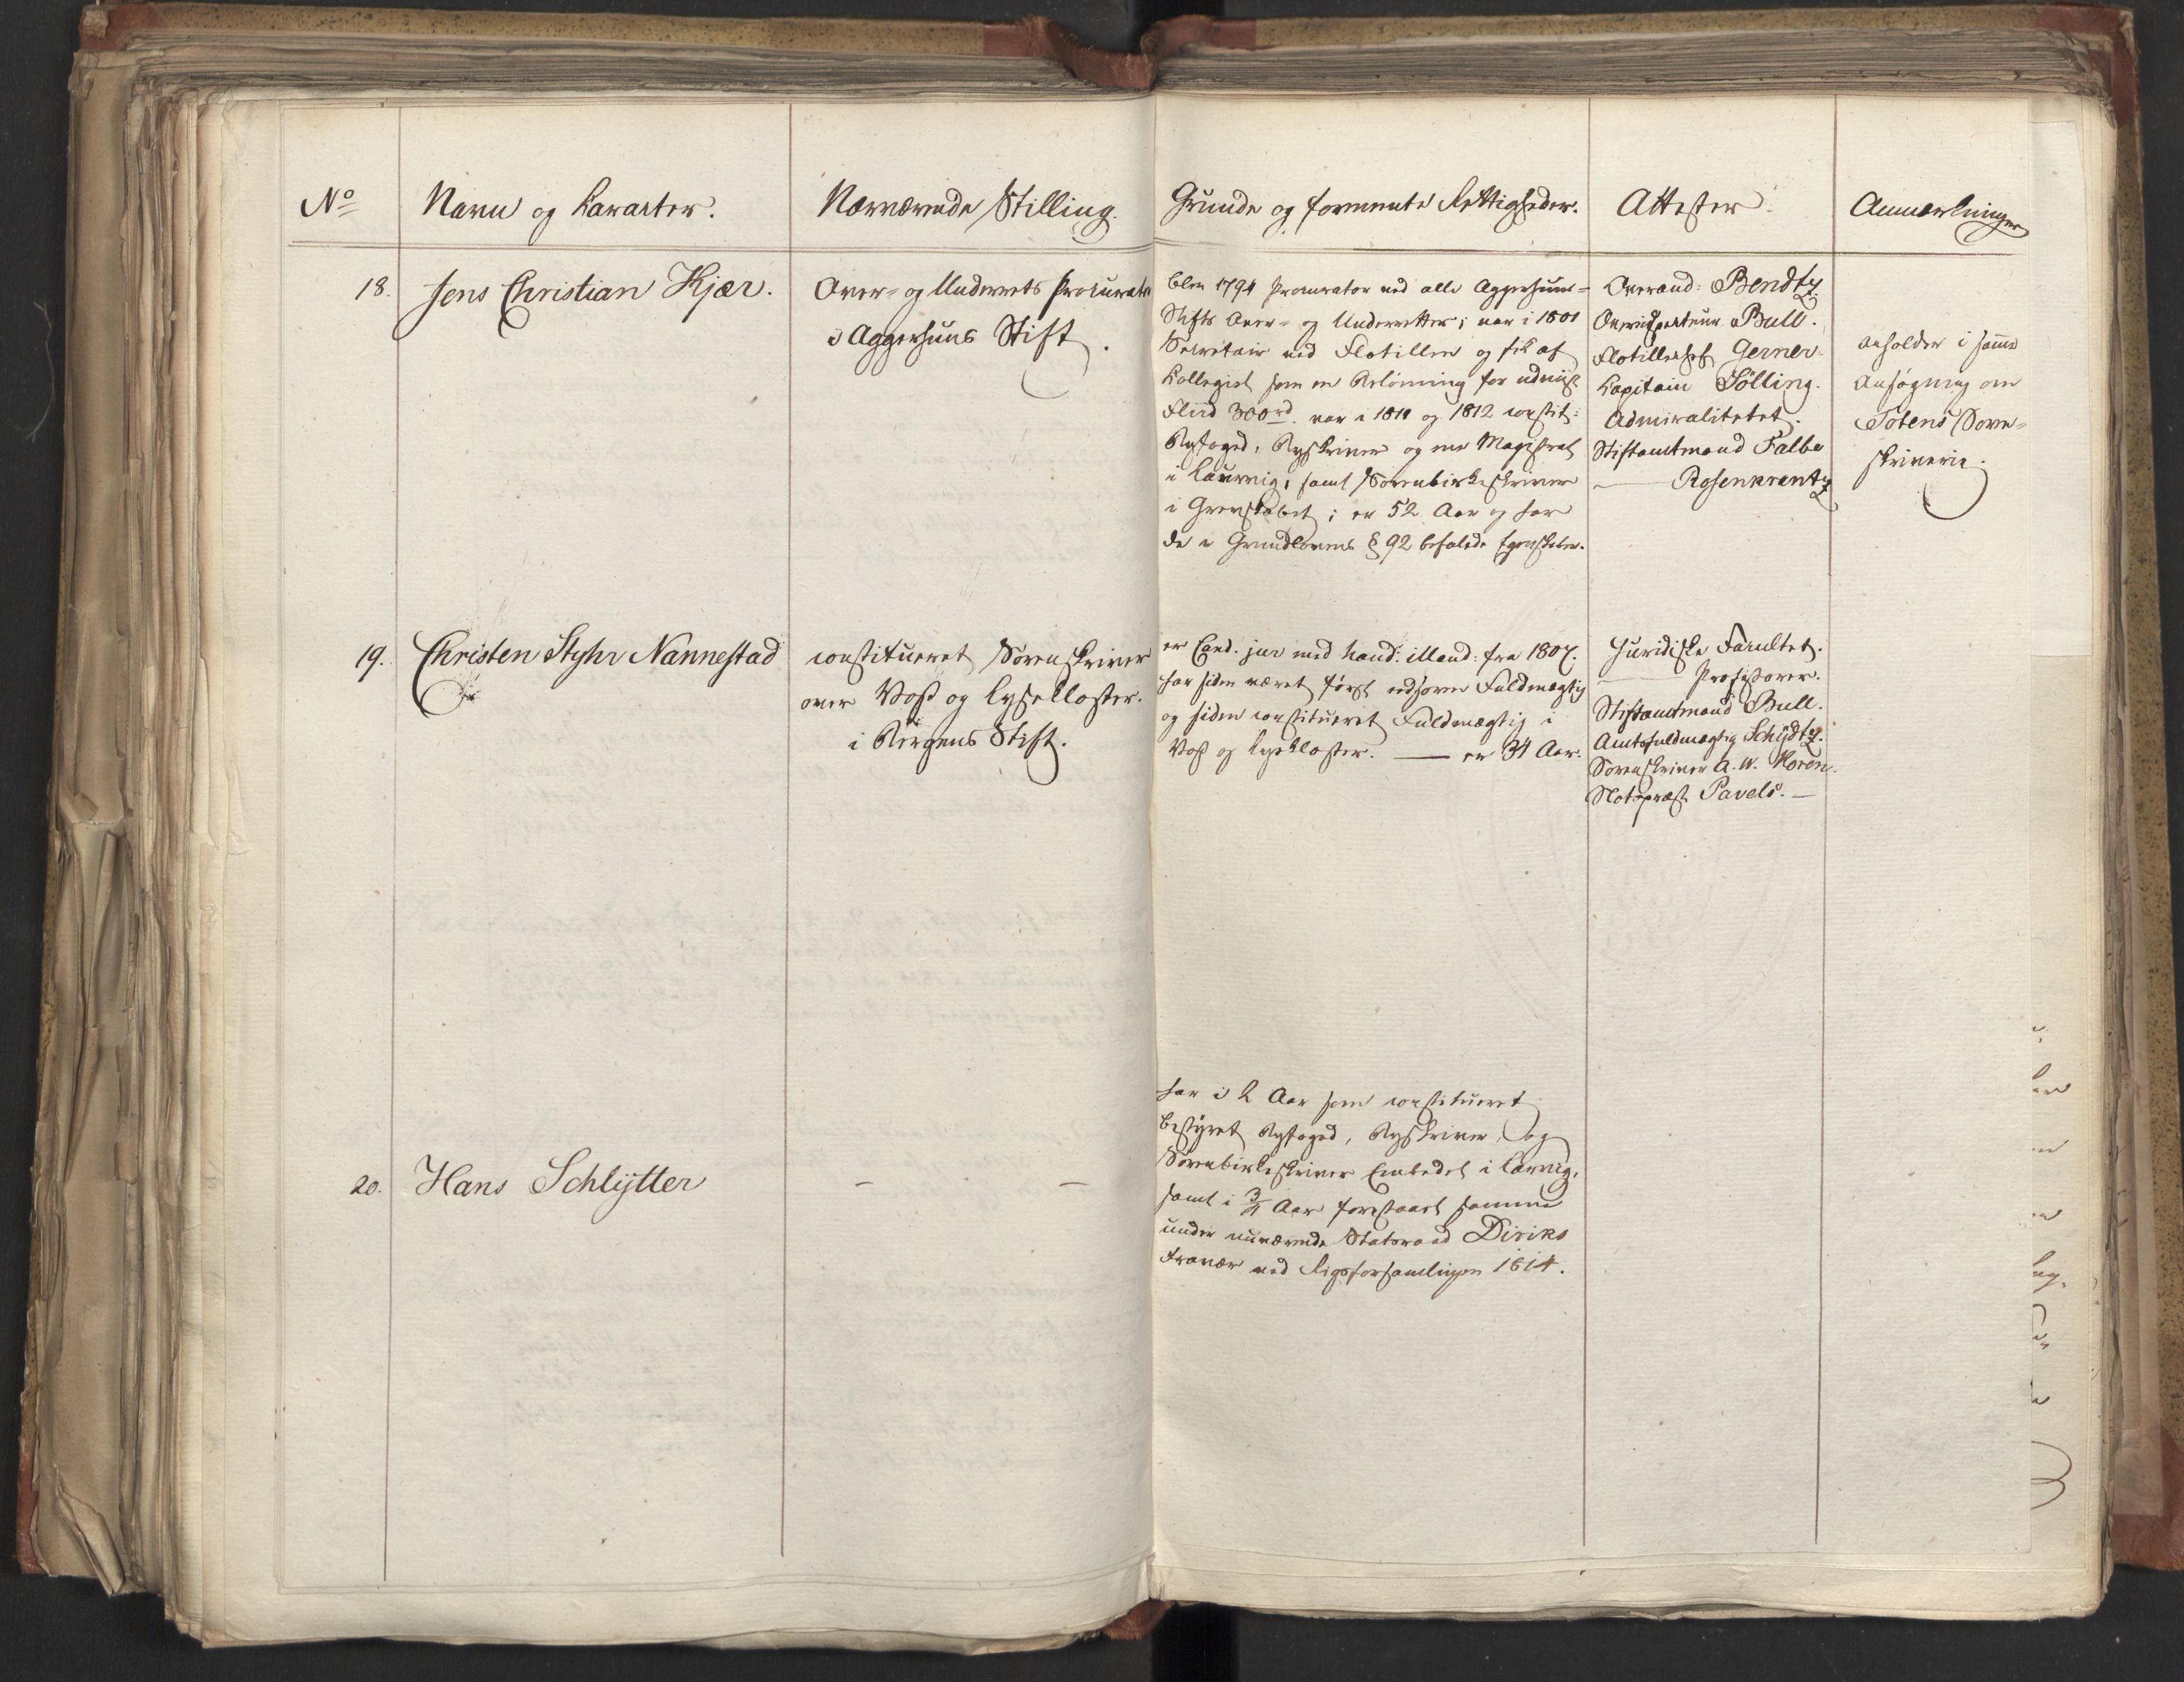 No
Navn og Caracter.
Nærværende Stilling.
Grunde og formeente Rettigheder.
Attester.
Anmærkninger
18.
Jens Christian Kjær.
Over- og Underrets Procurator
i Aggershuus Stift.
blev 1794 Procurator ved alle Aggershuus-
Stifts Over- og Underretter; var i 1801
Secretair ved Flotillen og fik af
Collegiet som en Belønning for udviist
Fliid 300 rd. var i 1811 og 1812 constit:
Byfoged, Byskriver og een Magistrat
i Laurvig, samt Sorenbirkeskriver
i Grevskabet; er 52 Aar og har
de i Grundlovens § 92 befalede Egenskaber.
Overaud: Bendtz.
Overinspecteur Bull.
Flotillechef Gerner.
Capitain Sølling.
Admiralitetet.
Stiftamtmand Falbe
— Rosenkrantz
anholder i samme
Ansøgning om
Totens Soren-
skriverie.
19.
Christen Styhr Nannestad
constitueret Sorenskriver
over Voss og Lysekloster.
i Bergens Stift.
er Cand. jur med haud: illaud: fra 1807.
har siden været først edsvoren Fuldmægtig
og siden constitueret Fuldmægtig i
Voss og Lysekloster. — er 34 Aar.
Juridiske Facultet.
— Professorer.
Stiftamtmand Bull.
Amtsfuldmægtig Schydtz.
Sorenskriver A. W. Koren.
Slotspræst Pavels. —
20.
Hans Schlytter
— —
har i 2 Aar som constitueret
bestyret Byfoged, Byskriver og
Sorenbirkeskriver Embedet i Laurvig,
samt i 3/4 Aar forestaaet samme
under nuværende Statsraad Diriks
Fravær ved Rigsforsamlingen 1814.